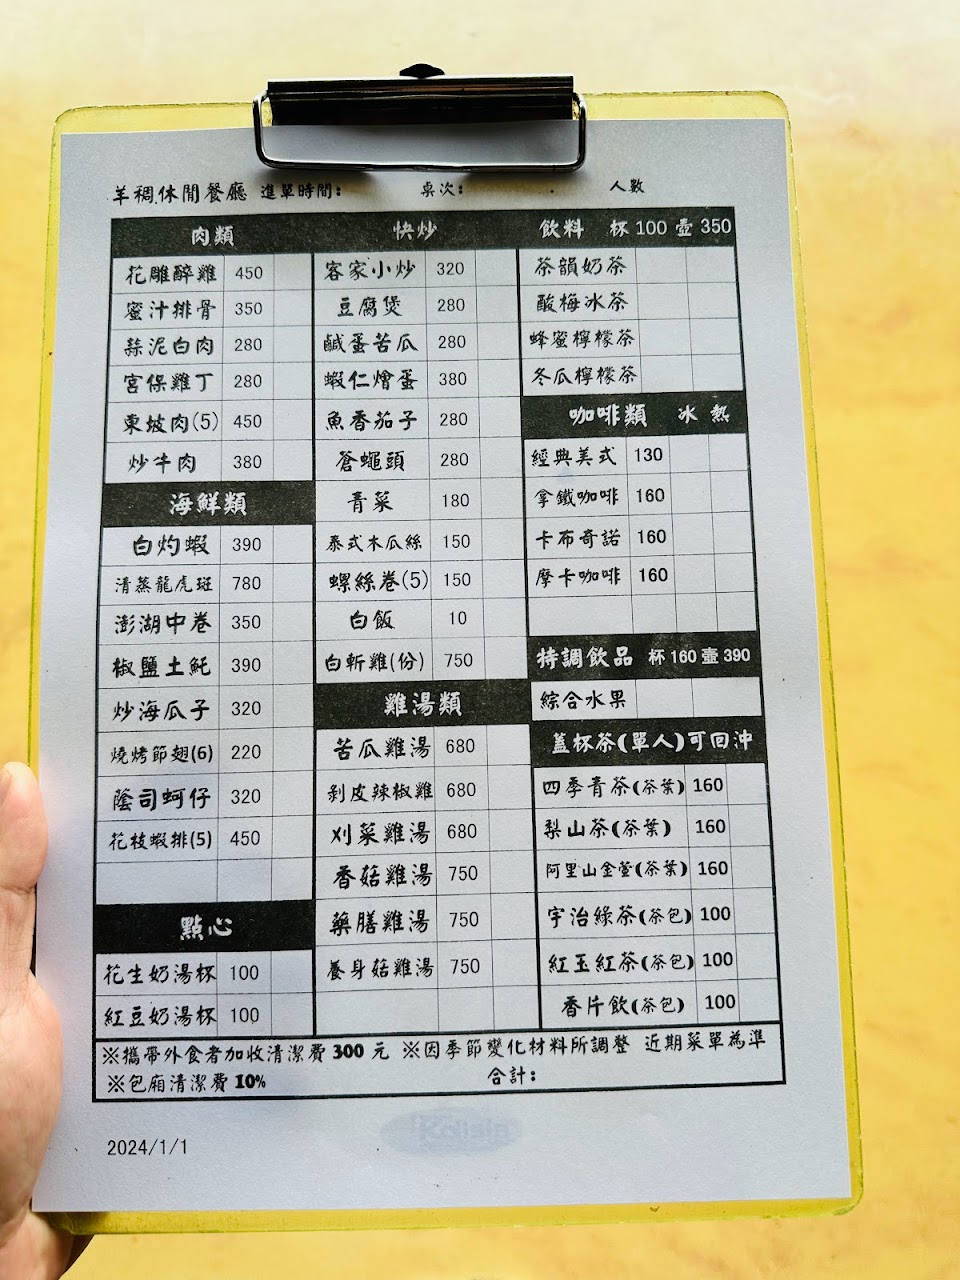 羊稠休閒餐廳 進單時間: 桌次: 人數
肉類
花雕醉雞 450
蜜汁排骨 350
蒜泥白肉 280
宮保雞丁 280
東坡肉(5) 450
炒牛肉 380
海鮮類
白灼蝦 390
清蒸龍虎斑 780
澎湖中卷 350
椒鹽土魠 390
炒海瓜子 320
燒烤節翅(6) 220
蔭司蚵仔 320
花枝蝦排(5) 450
點心
花生奶湯杯 100
紅豆奶湯杯 100
快炒
客家小炒 320
豆腐煲 280
鹹蛋苦瓜 280
蝦仁燴蛋 380
魚香茄子 280
蒼蠅頭 280
青菜 180
泰式木瓜絲 150
螺絲卷(5) 150
白飯 10
白斬雞(份) 750
雞湯類
苦瓜雞湯 680
剝皮辣椒雞 680
刈菜雞湯 680
香菇雞湯 750
藥膳雞湯 750
養身菇雞湯 750
飲料 杯100 壺350
茶韻奶茶
酸梅冰茶
蜂蜜檸檬茶
冬瓜檸檬茶
咖啡類 冰 熱
經典美式 130
拿鐵咖啡 160
卡布奇諾 160
摩卡咖啡 160
特調飲品 杯160 壺390
綜合水果
蓋杯茶(單人)可回沖
四季青茶(茶葉) 160
梨山茶(茶葉) 160
阿里山金萱(茶葉) 160
宇治綠茶(茶包) 100
紅玉紅茶(茶包) 100
香片飲(茶包) 100
※攜帶外食者加收清潔費300元 ※因季節變化材料所調整 近期菜單為準
※包廂清潔費10% 合計:
2024/1/1